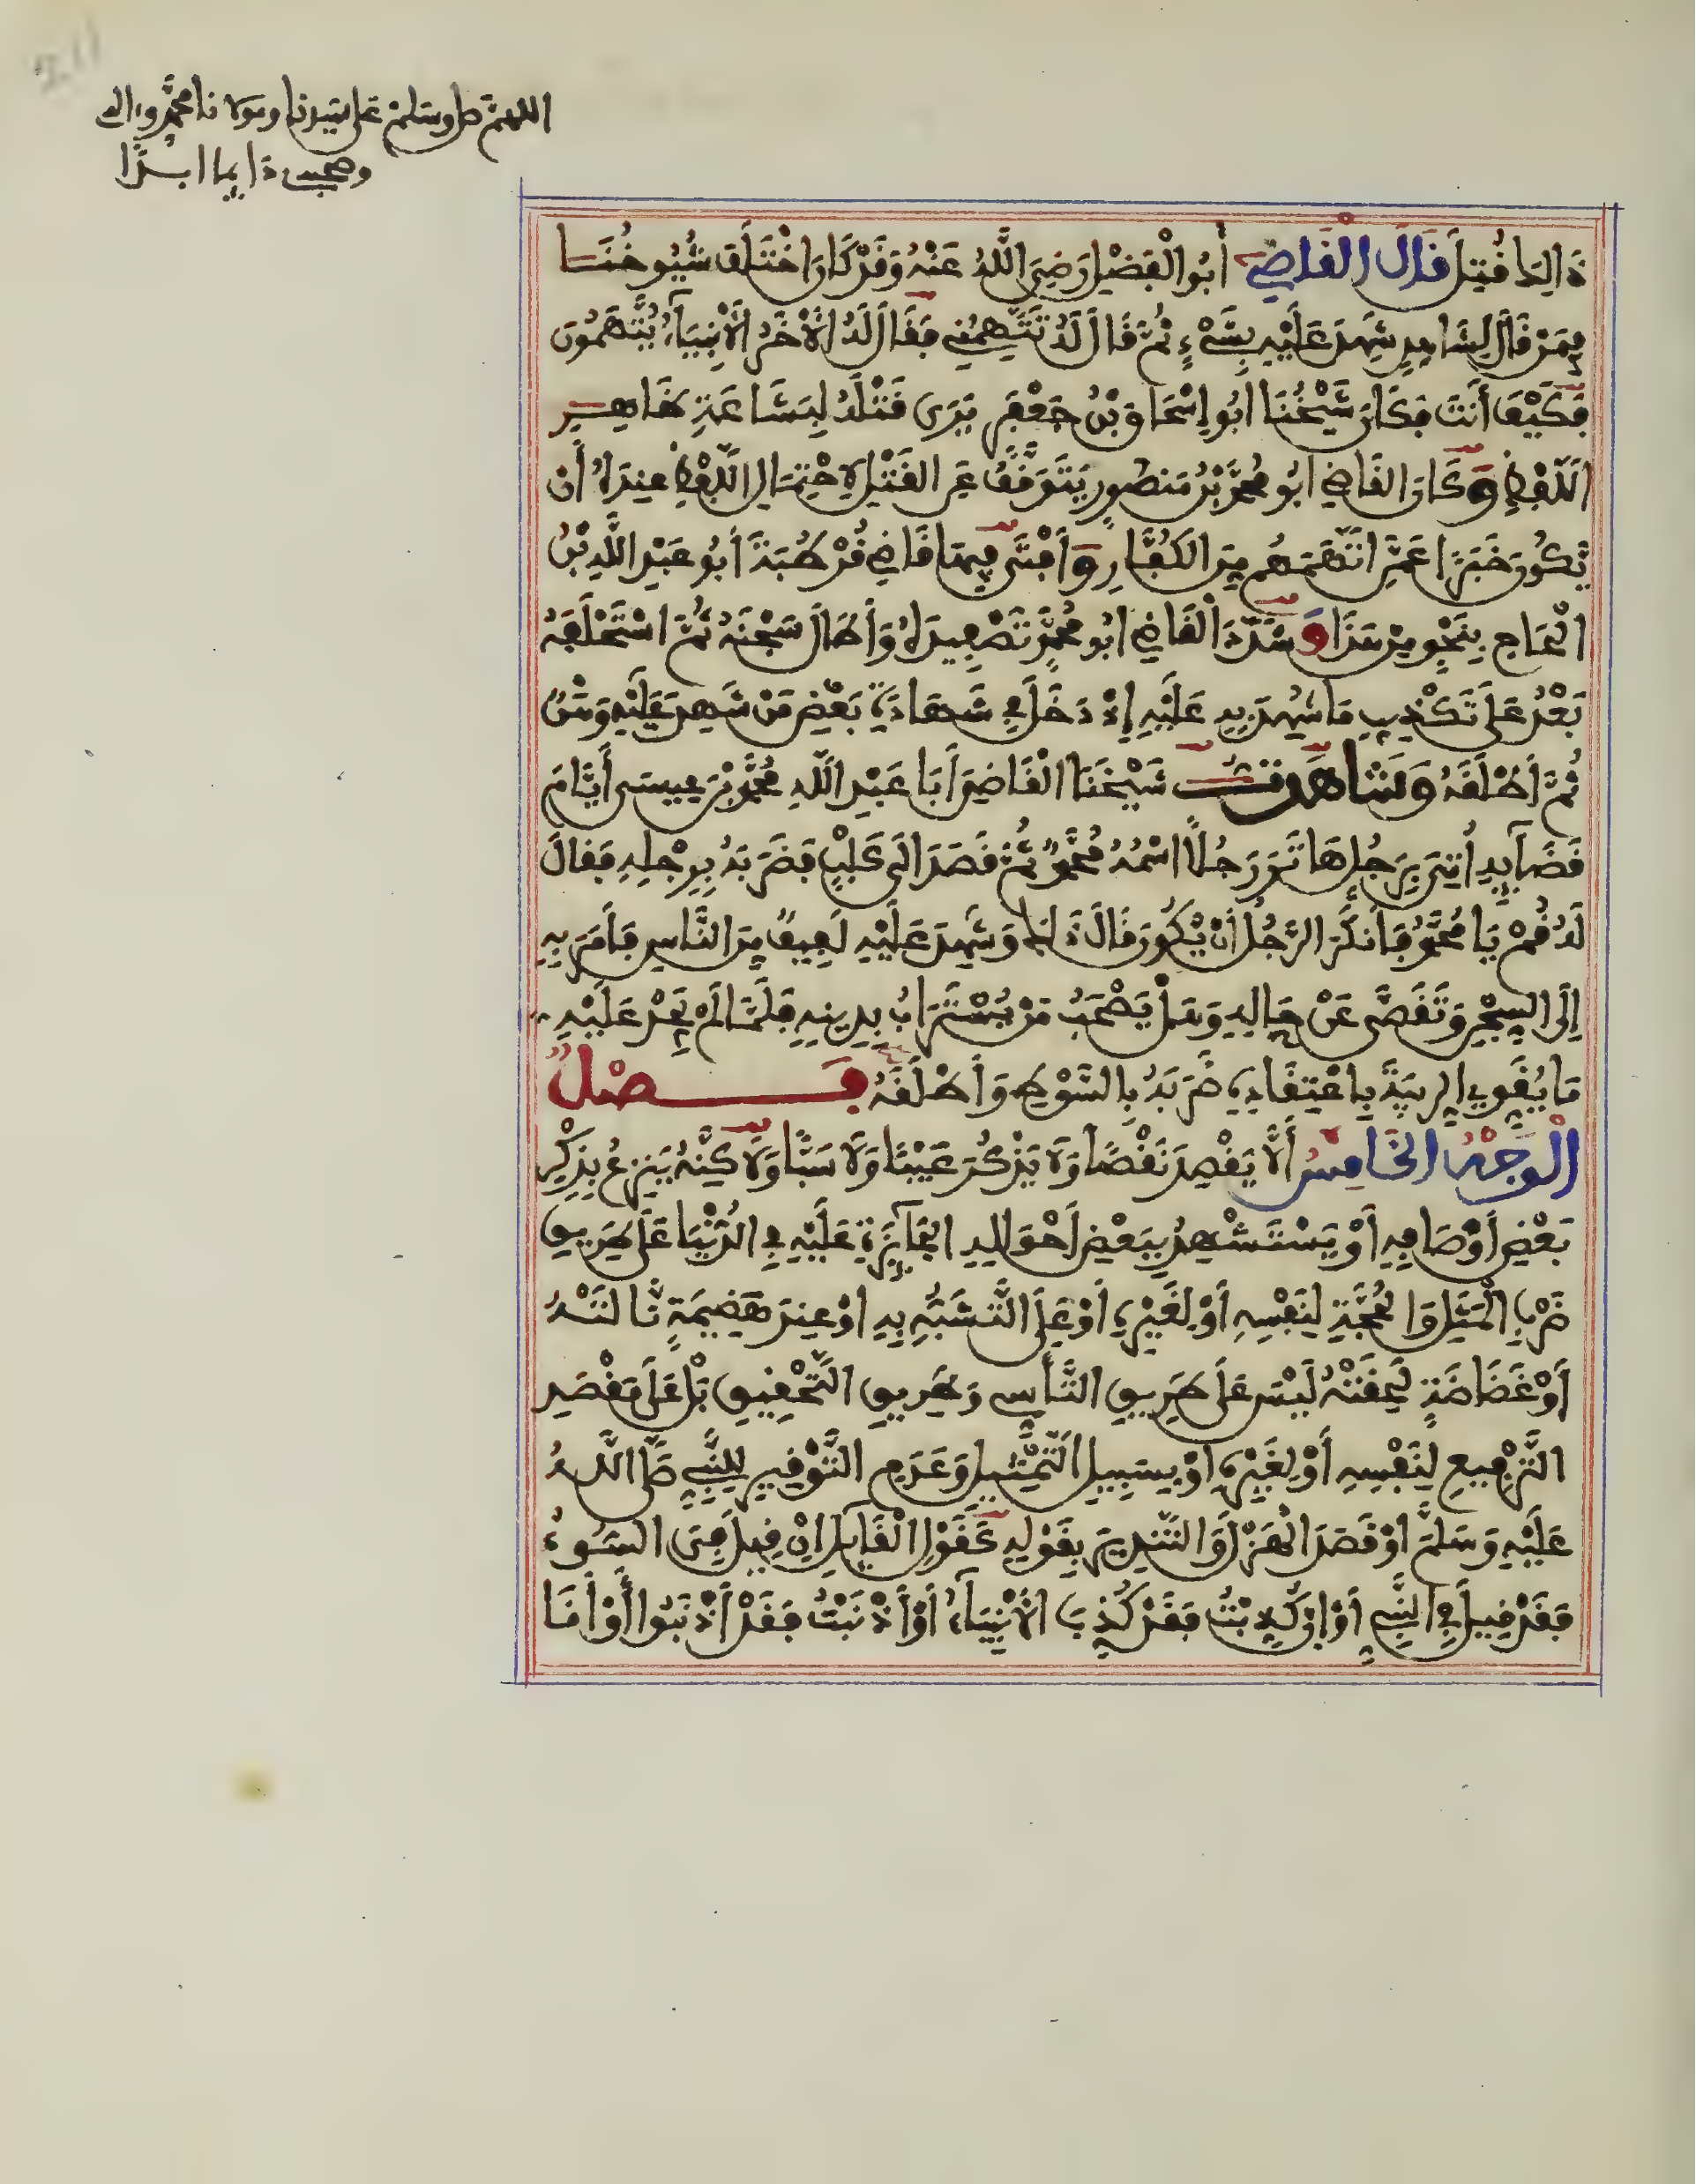 اللهم صل وسلم على سيدنا ومولانا محمد وءاله
وصحبه دايما ابدا
ذَالِكَ قُتِلَ قَالَ الْقَاضِي أَبُو الْفَضْلِ رَضِيَ اللَّهُ عَنْهُ وَقَدْ كَانَ اخْتَلَفَ شُيُوخُنَا
فِيمَنْ قَالَ لِشَاهِدٍ شَهِدَ عَلَيْهِ بِشَيْءٍ ثُمَّ قَالَ لَهُ تَتَّهِمُنِي فَقَالَ لَهُ الْآخَرُ الْأَنْبِيَاءُ يُتَّهَمُونَ
فَكَيْفَ أَنْتَ فَكَانَ شَيْخُنَا أَبُو إِسْحَاقَ بْنُ جَعْفَرٍ يَرَى قَتْلَهُ لِبَشَاعَةِ ظَاهِرِ
اللَّفْظِ وَكَانَ الْقَاضِي أَبُو مُحَمَّدِ بْنُ مَنْصُورٍ يَتَوَقَّفُ عَنِ الْقَتْلِ لِاحْتِمَالِ اللَّفْظِ عِنْدَهُ أَنْ
يَكُونَ خَبَرًا عَمَّنِ اتَّهَمَهُمْ مِنَ الْكُفَّارِ وَأَفْتَى فِيهَا قَاضِي قُرْطُبَةَ أَبُو عَبْدِ اللَّهِ بْنُ
الْحَاجِّ بِنَحْوٍ مِنْ هَذَا وَشَدَّدَ الْقَاضِي أَبُو مُحَمَّدٍ تَصْفِيدَهُ وَأَطَالَ سَجْنَهُ ثُمَّ اسْتَحْلَفَهُ
بَعْدُ عَلَى تَكْذِيبِ مَا شُهِدَ بِهِ عَلَيْهِ إِذْ دَخَلَ فِي شَهَادَةِ بَعْضِ مَنْ شَهِدَ عَلَيْهِ وَهْنٌ
ثُمَّ أَطْلَقَهُ وَشَاهَدْتُ شَيْخَنَا الْقَاضِيَ أَبَا عَبْدِ اللَّهِ مُحَمَّدَ بْنَ عِيسَى أَيَّامَ
قَضَائِهِ أُتِيَ بِرَجُلٍ هَاتَرَ رَجُلًا اسْمُهُ مُحَمَّدٌ ثُمَّ قَصَدَ إِلَى كَلْبٍ فَضَرَبَهُ بِرِجْلِهِ فَقَالَ
لَهُ قُمْ يَا مُحَمَّدُ فَأَنْكَرَ الرَّجُلُ أَنْ يَكُونَ قَالَ ذَلِكَ وَشَهِدَ عَلَيْهِ لَفِيفٌ مِنَ النَّاسِ فَأَمَرَ بِهِ
إِلَى السِّجْنِ وَتَقَصَّى عَنْ حَالِهِ وَهَلْ يَصْحَبُ مَنْ يُسْتَرَابُ بِدِينِهِ فَلَمَّا لَمْ يَجِدْ عَلَيْهِ
مَا يُقَوِّي الرِّيبَةَ بِاعْتِقَادِهِ ضَرَبَهُ بِالسَّوْطِ وَأَطْلَقَهُ فَصْلٌ
الْوَجْهُ الْخَامِسُ أَلَّا يَقْصِدَ نَقْصًا وَلَا يَذْكُرَ عَيْبًا وَلَا سَبًّا وَلَاكِنَّهُ يَنْزِعُ بِذِكْرِ
بَعْضِ أَوْصَافِهِ أَوْ يَسْتَشْهِدُ بِبَعْضِ أَحْوَالِهِ الْجَائِزَةِ عَلَيْهِ فِي الدُّنْيَا عَلَى طَرِيقِ
ضَرْبِ الْمَثَلِ وَالْحُجَّةِ لِنَفْسِهِ أَوْ لِغَيْرِهِ أَوْ عَلَى التَّشَبُّهِ بِهِ أَوْ عِنْدَ هَضِيمَةٍ نَالَتْهُ
أَوْ غَضَاضَةٍ لَحِقَتْهُ لَيْسَ عَلَى طَرِيقِ التَّأَسِّي وَطَرِيقِ التَّحْقِيقِ بَلْ عَلَى مَقْصِدِ
التَّرْفِيعِ لِنَفْسِهِ أَوْ لِغَيْرِهِ أَوْ بِسَبِيلِ التَّمْثِيلِ وَعَدَمِ التَّوْقِيرِ لِلنَّبِيِّ صَلَّى اللَّهُ
عَلَيْهِ وَسَلَّمَ أَوْ قَصَدَ الْهَزْلَ وَالتَّنْدِيرَ بِقَوْلِهِ كَقَوْلِ الْقَائِلِ إِنْ قِيلَ فِيَّ السُّوءُ
فَقَدْ قِيلَ فِي النَّبِيِّ أَوْ إِنْ كُذِّبْتُ فَقَدْ كُذِّبَ الْأَنْبِيَاءُ أَوْ أَذْنَبْتُ فَقَدْ أَذْنَبُوا أَوْ أَنَا